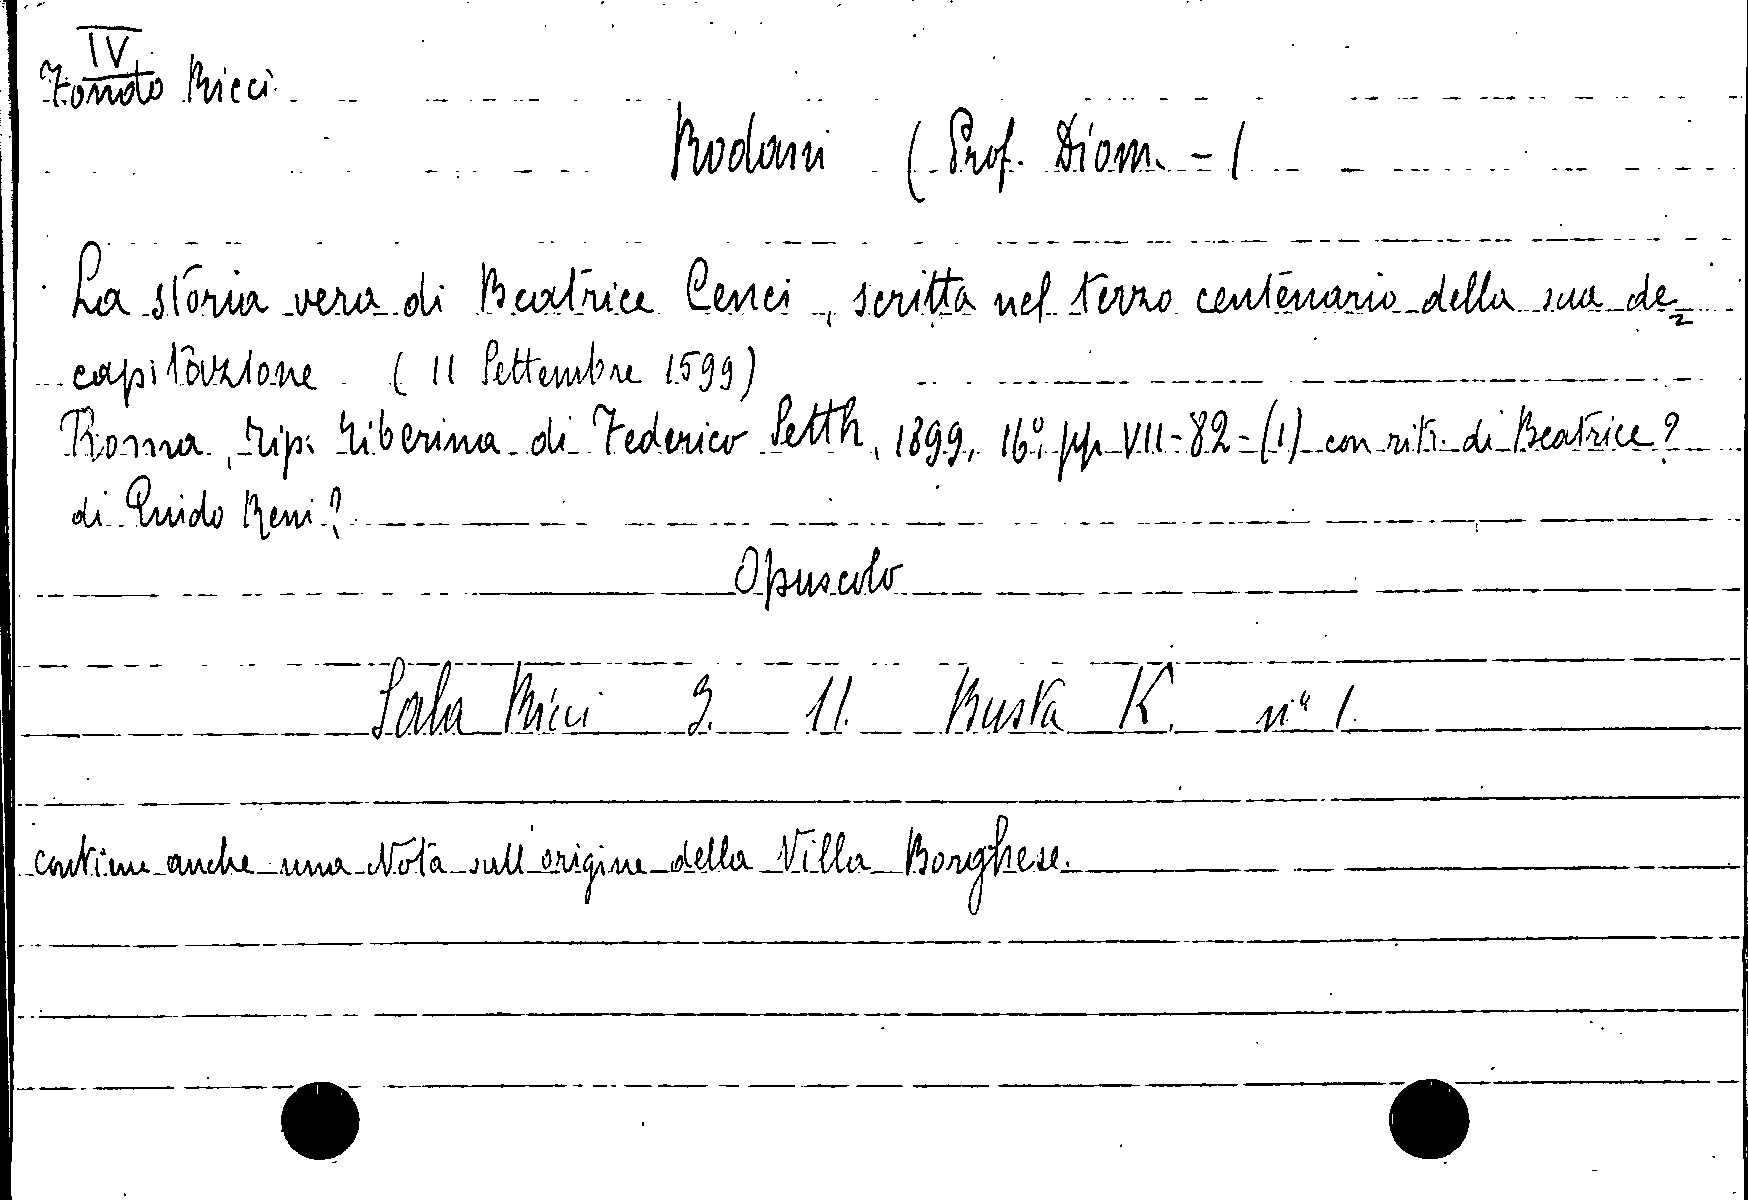 IV
Fondo Ricci
Rodani (Prof. Diom. - (
La storia vera di Beatrice Cenci, scritta nel terzo centenario della sua de=
capitazione (11 Settembre 1599)
Roma, Tip. Tiberina di Federico Setth, 1899, 16°, pp VII-82-(1) con ritr. di Beatrice?
di Guido Reni?
Opuscolo
Sala Ricci 3. 11. Busta K. n° 1.
contiene anche una Nota sull'origine della Villa Borghese.